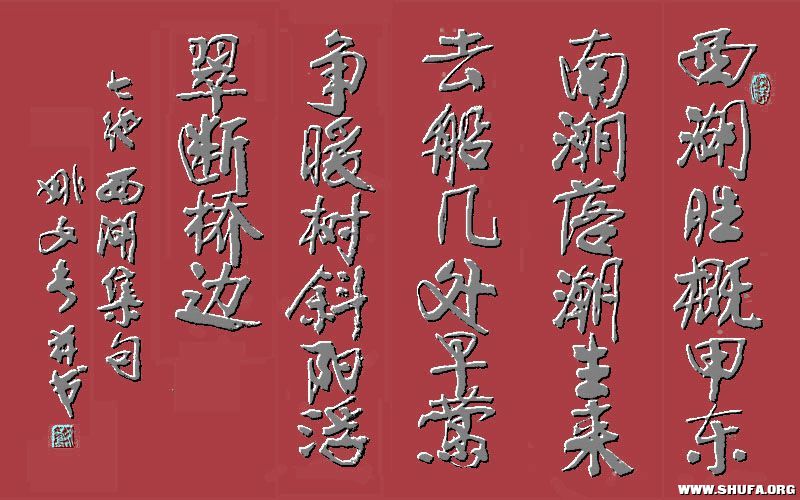 西湖胜概甲东
南潮落潮生来
去船几处早莺
争暖树斜阳浮
翠断桥边
七绝西湖集句
姚文并书
WWW.SHUFA.ORG